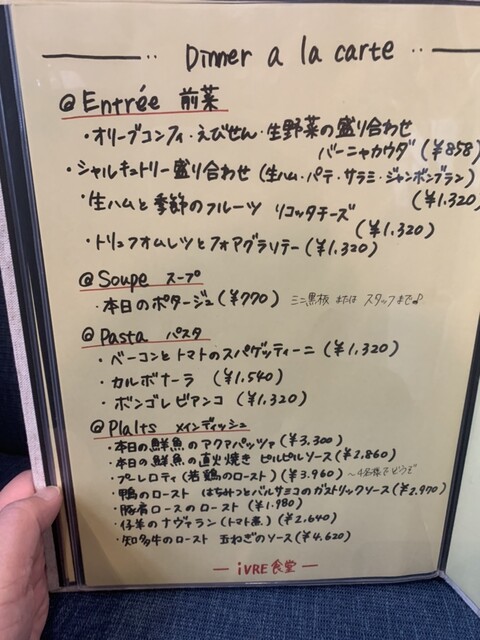 Dinner a la carte
@ Entrée 前菜
・オリーブコンフィ・えびせん・生野菜の盛り合わせ
バーニャカウダ (¥858)
・シャルキュトリー盛り合わせ (生ハム・パテ・サラミ・ジャンボンブラン)
(¥1,320)
・生ハムと季節のフルーツ リコッタチーズ
(¥1,320)
・トリュフオムレツとフォアグラソテー (¥1,320)
@ Soupe スープ
・本日のポタージュ (¥770) ミニ黒板 または スタッフまで♪
@ Pasta パスタ
・ベーコンとトマトのスパゲッティーニ (¥1,320)
・カルボナーラ (¥1,540)
・ボンゴレビアンコ (¥1,320)
@ Plalts メインディッシュ
・本日の鮮魚のアクアパッツァ (¥3,300)
・本日の鮮魚の直火焼き ピルピルソース (¥2,860)
・プレロティ (若鶏のロースト) (¥3,960) 〜4名様でどうぞ
・鴨のロースト はちみつとバルサミコのガストリックソース (¥2,970)
・豚肩ロースのロースト (¥1,980)
・仔羊のナヴァラン (トマト煮) (¥2,640)
・知多牛のロースト 玉ねぎのソース (¥4,620)
— iVRE 食堂 —